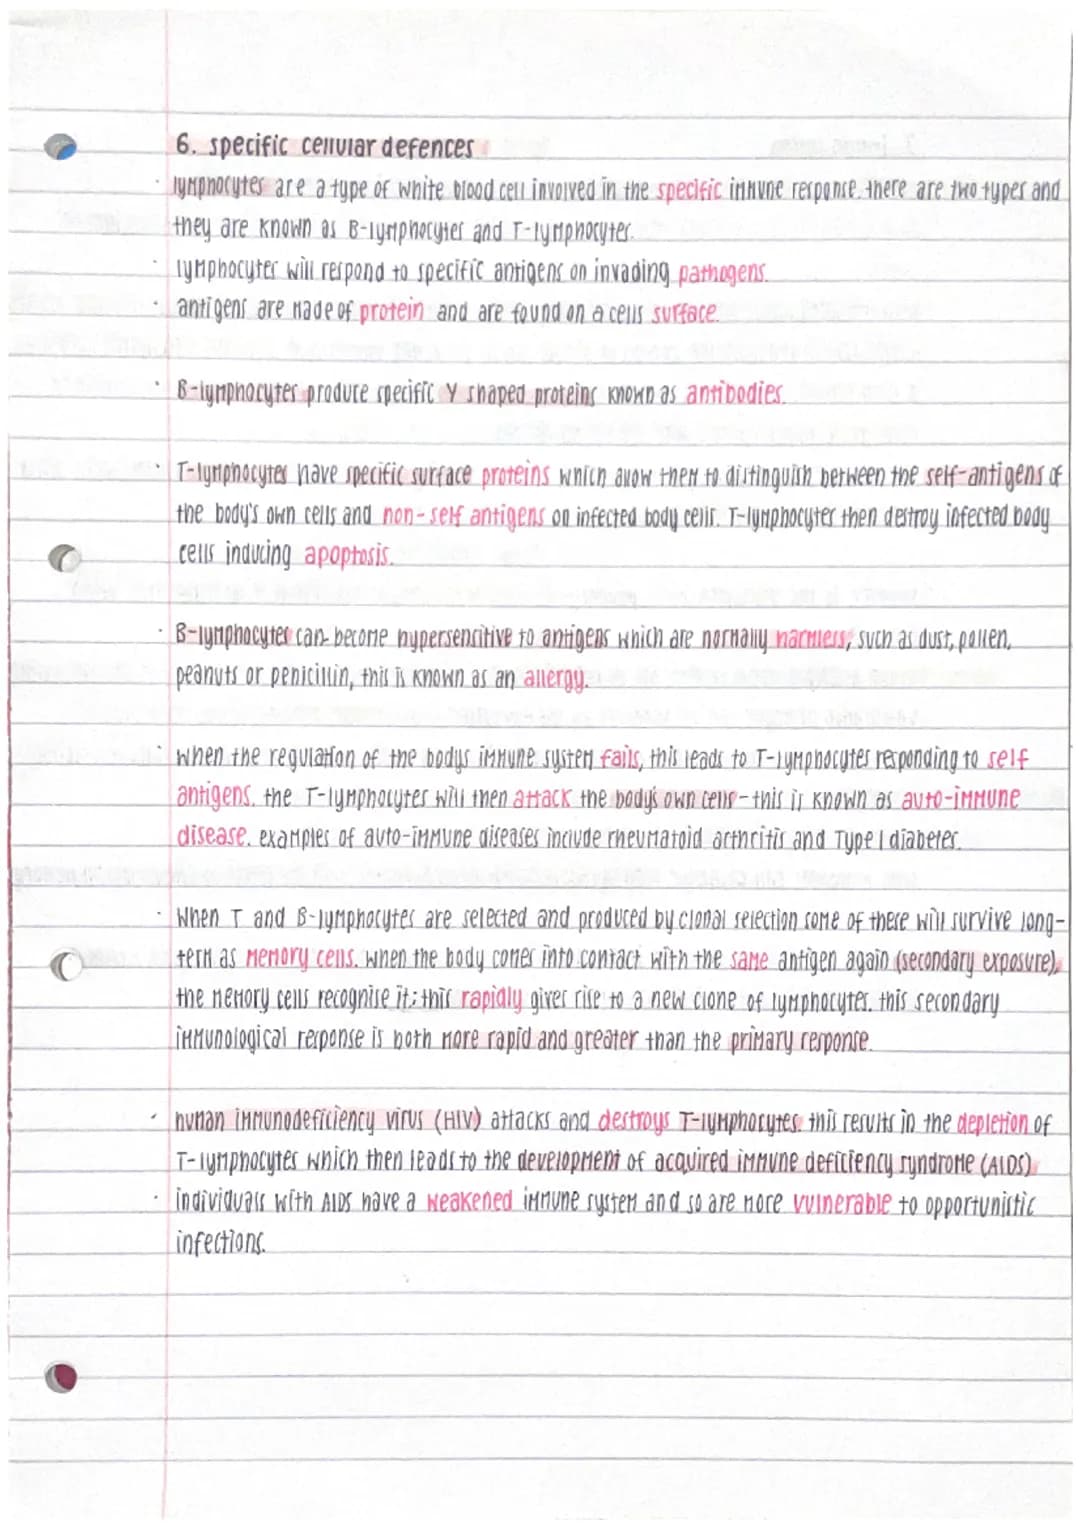 6. specific cellular defences
· lymphocytes are a type of white blood cell involved in the specific immune response. there are two types and
they are known as B-lymphocytes and T-lymphocytes.
· lymphocytes will respond to specific antigens on invading pathogens.
· antigens are made of protein and are found on a cells surface.
· B-lymphocytes produce specific Y shaped proteins known as antibodies.
· T-lymphocytes have specific surface proteins which allow them to distinguish between the self-antigens of
the body's own cells and non-self antigens on infected body cells. T-lymphocytes then destroy infected body
cells inducing apoptosis.
· B-lymphocytes can become hypersensitive to antigens which are normally harmless, such as dust, pollen,
peanuts or penicillin, this is known as an allergy.
· when the regulation of the bodys immune system fails, this leads to T-lymphocytes responding to self
antigens. the T-lymphocytes will then attack the body's own cells - this is known as auto-immune
disease. examples of auto-immune diseases include rheumatoid arthritis and Type 1 diabetes.
· When T and B-lymphocytes are selected and produced by clonal selection some of these will survive long-
term as memory cells. when the body comes into contact with the same antigen again (secondary exposure),
the memory cells recognise it; this rapidly gives rise to a new clone of lymphocytes. this secondary
immunological response is both more rapid and greater than the primary response.
· human immunodeficiency virus (HIV) attacks and destroys T-lymphocytes. this results in the depletion of
T-lymphocytes which then leads to the development of acquired immune deficiency syndrome (AIDS)
· individuals with AIDS have a weakened immune system and so are more vulnerable to opportunistic
infections.